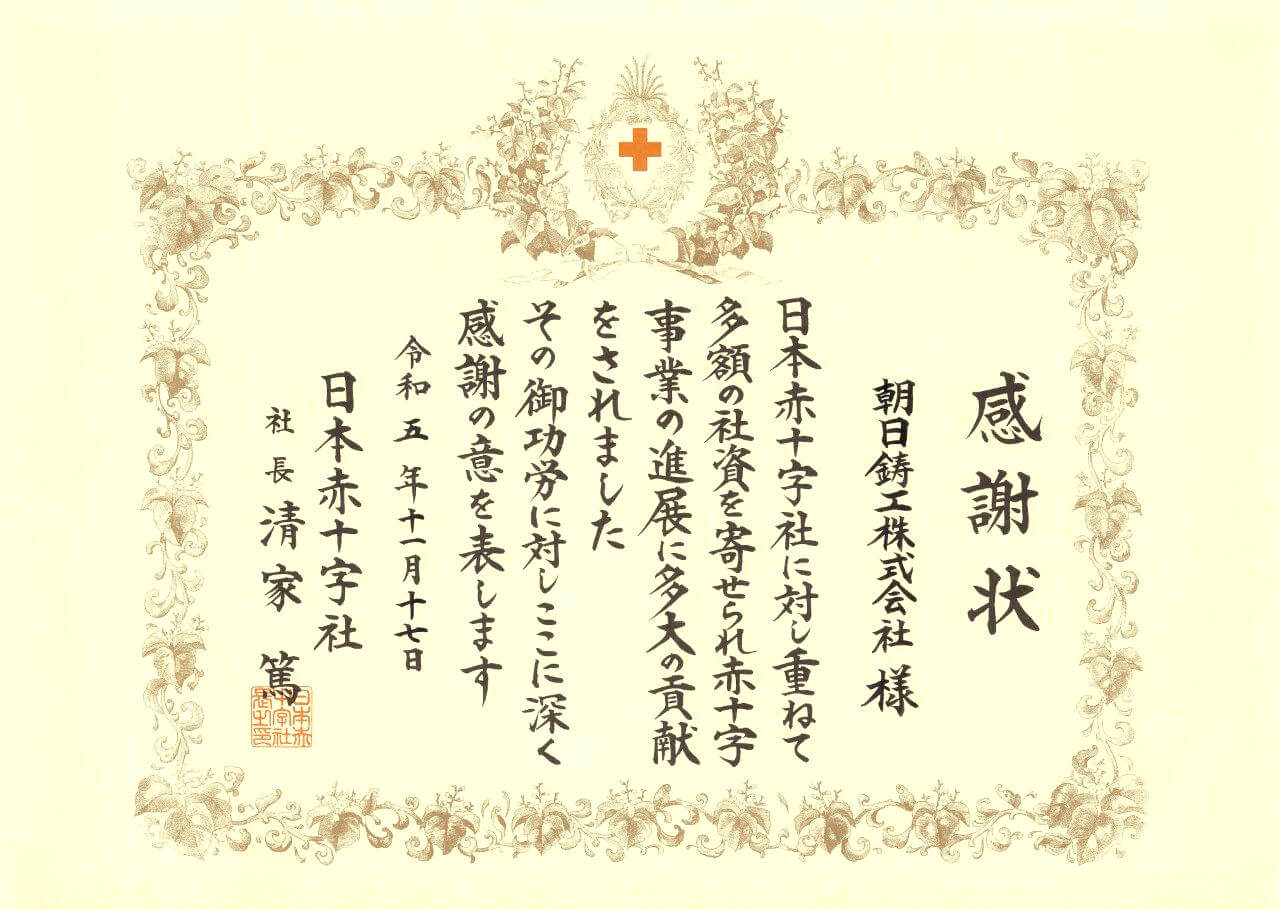 感謝状
朝日鋳工株式会社 様
日本赤十字社に対し重ねて
多額の社資を寄せられ赤十字
事業の進展に多大の貢献
をされました
その御功労に対しここに深く
感謝の意を表します
令和五年十一月十七日
日本赤十字社
社長 清家 篤
日本赤
十字社